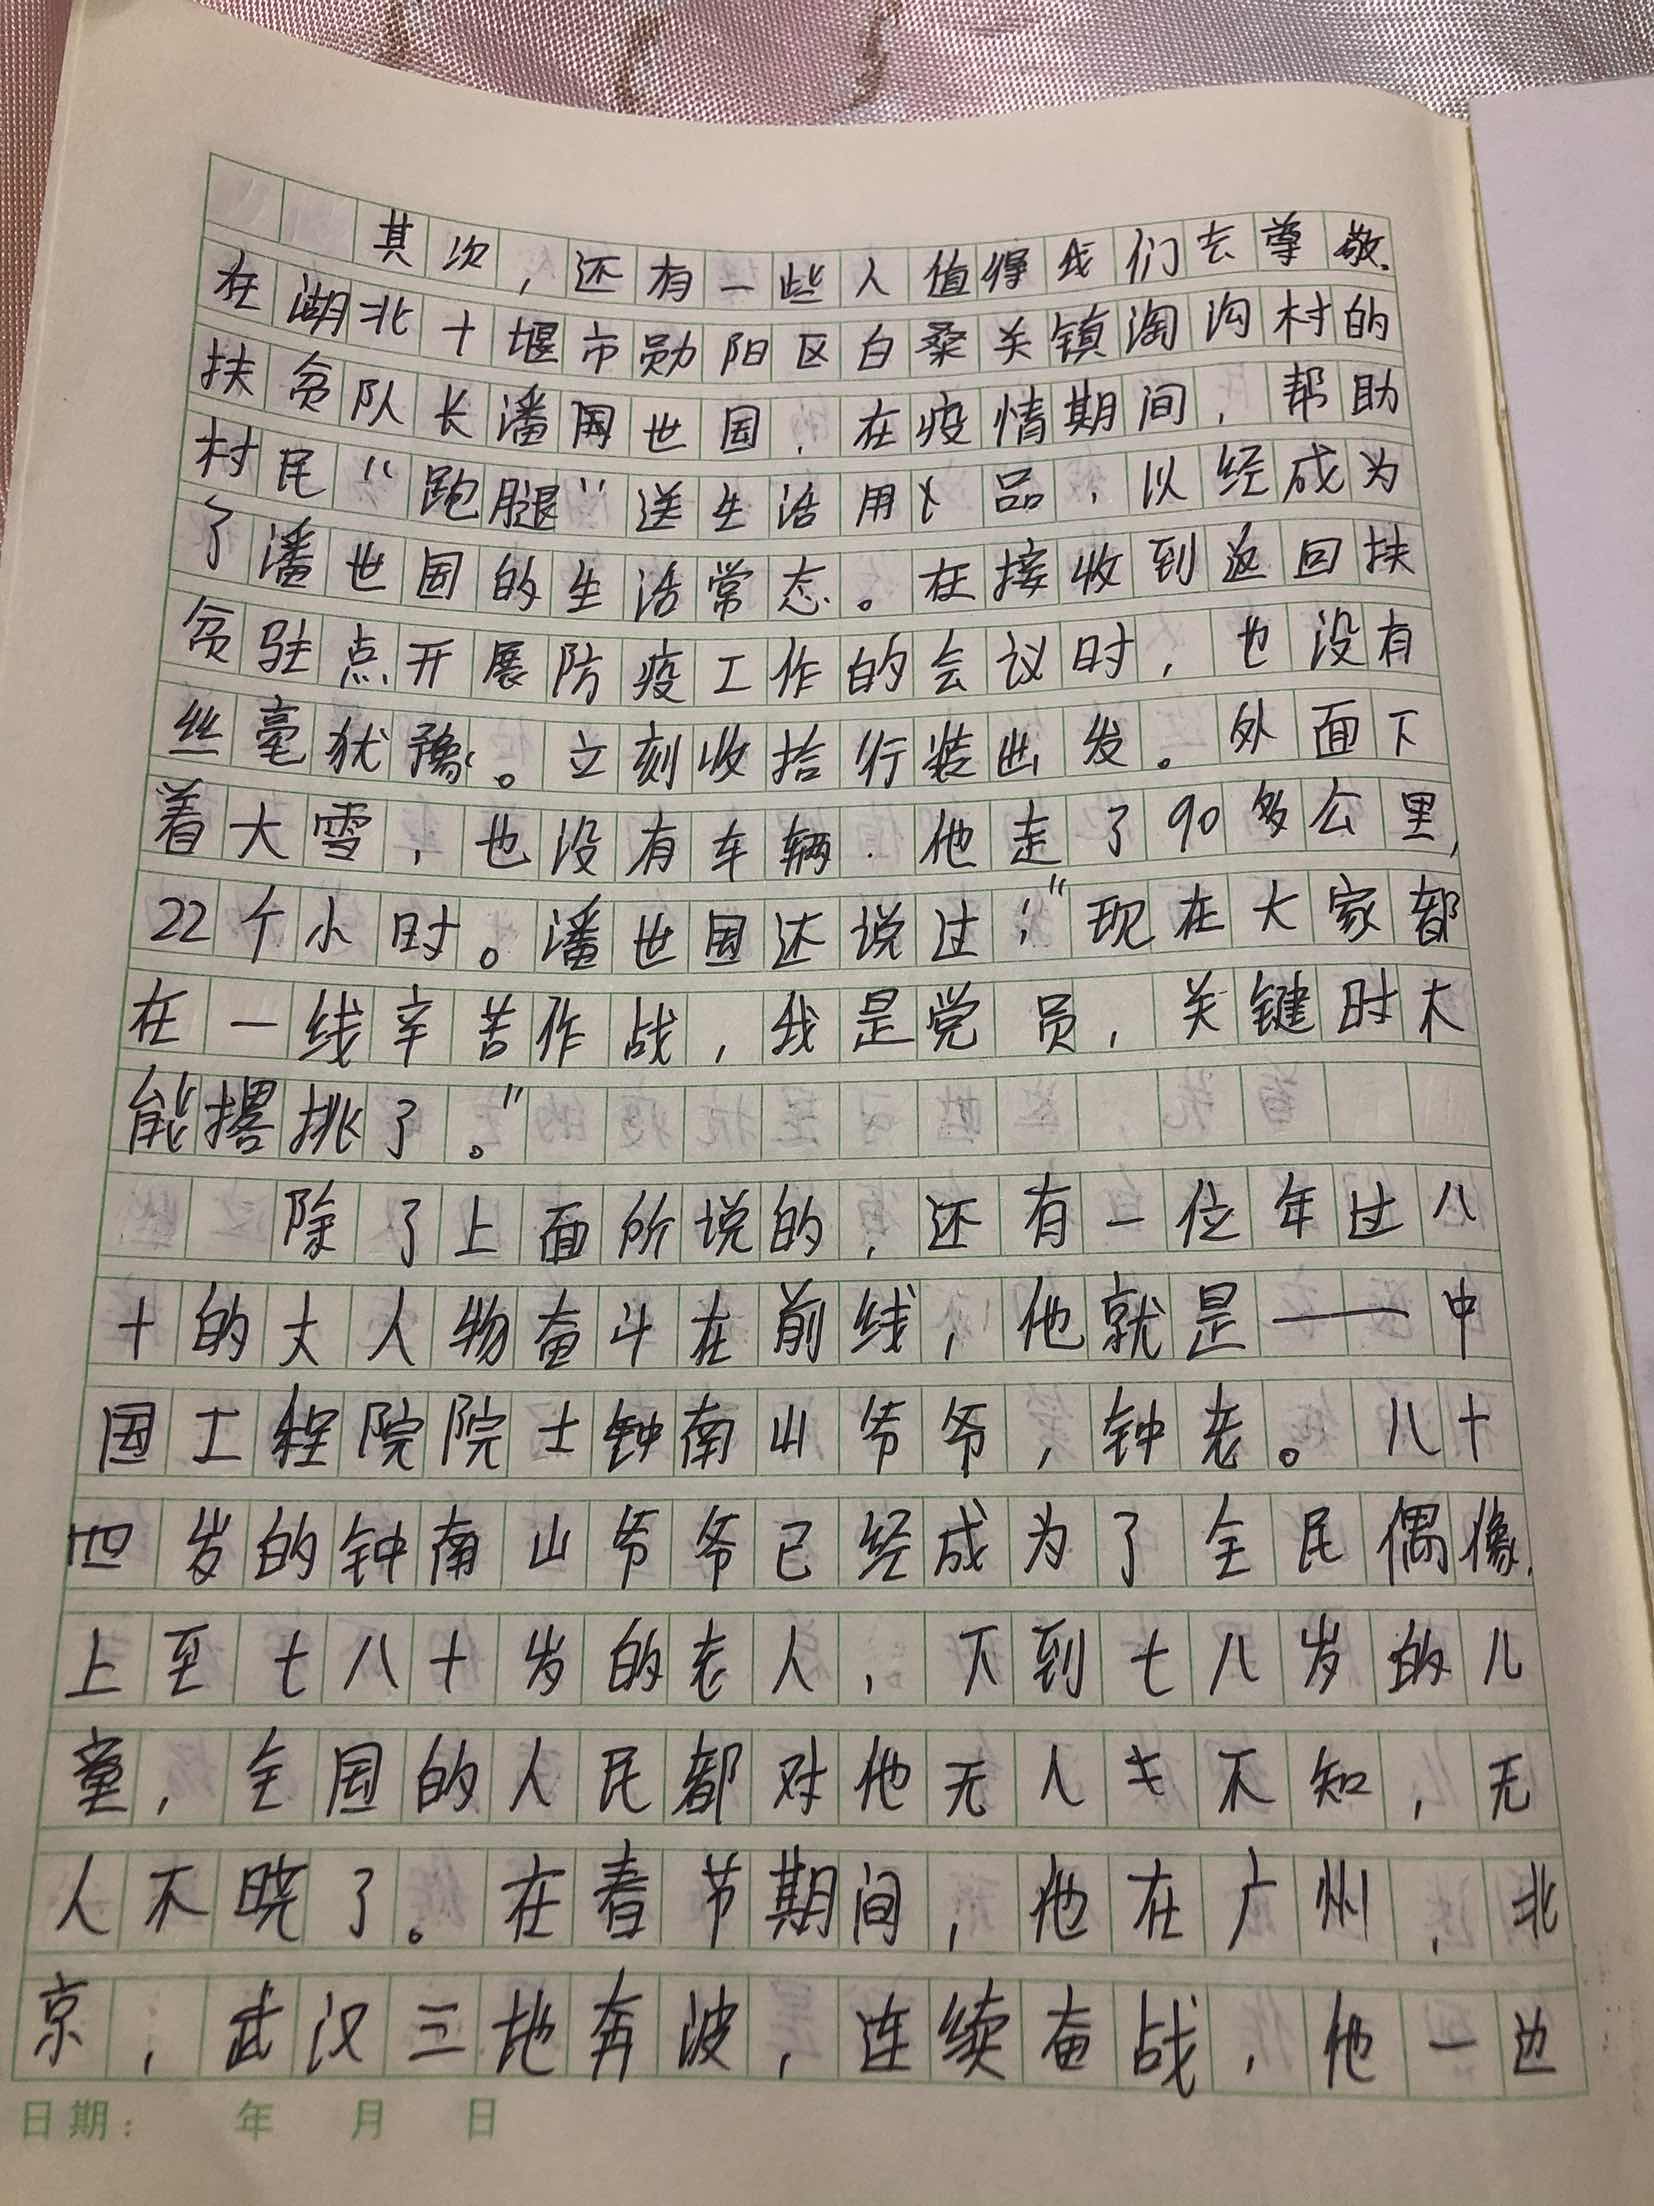 其次，还有一些人值得我们去尊敬.
在湖北十堰市勋阳区白桑关镇淘沟村的
扶贫队长潘国世国，在疫情期间，帮助
村民“跑腿”送生活用品，以经成为
了潘世国的生活常态。在接收到返回扶
贫驻点开展防疫工作的会议时，也没有
丝毫犹豫。立刻收拾行装出发。外面下
着大雪，也没有车辆.他走了90多公里，
22个小时。潘世国还说过：“现在大家都
在一线辛苦作战，我是党员，关键时不
能撂挑了。”
除了上面所说的，还有一位年过八
十的大人物奋斗在前线，他就是——中
国工程院院士钟南山爷爷，钟老。八十
四岁的钟南山爷爷已经成为了全民偶像.
上至七八十岁的老人，下到七八岁的儿
童，全国的人民都对他无人不知，无
人不晓了。在春节期间，他在广州，北
京，武汉三地奔波，连续奋战，他一边
日期： 年 月 日